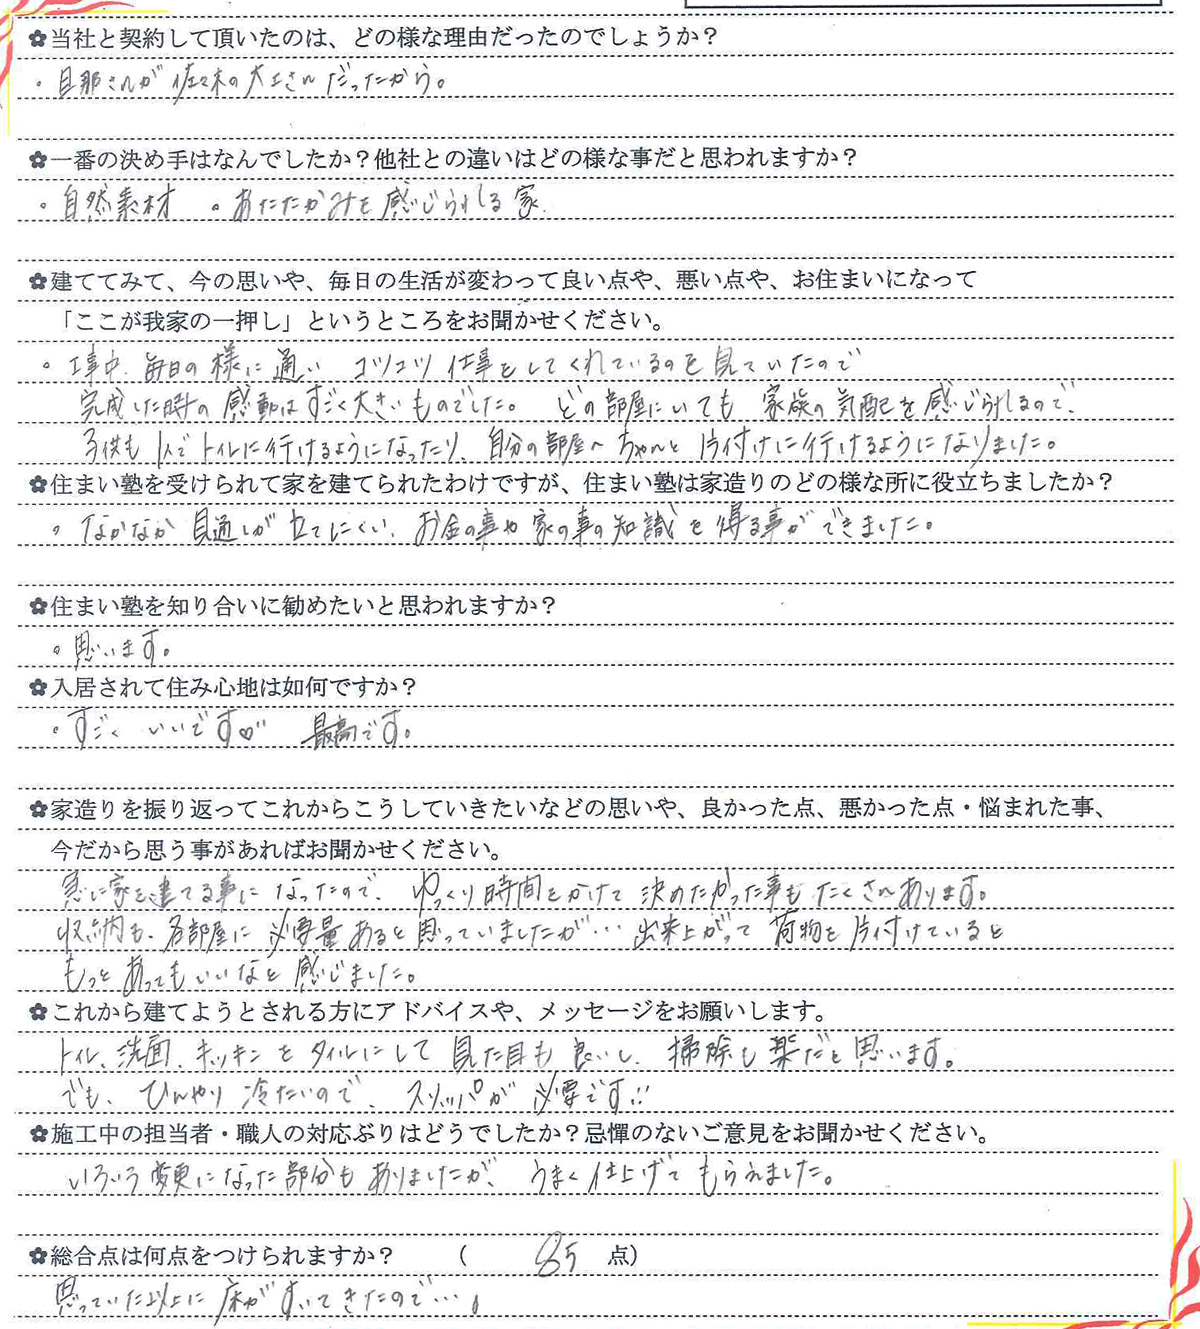 ✿当社と契約して頂いたのは、どの様な理由だったのでしょうか？
・旦那さんが佐々木の大工さんだったから。
✿一番の決め手はなんでしたか？他社との違いはどの様な事だと思われますか？
・自然素材 ・あたたかみを感じられる家
✿建ててみて、今の思いや、毎日の生活が変わって良い点や、悪い点や、お住まいになって
「ここが我家の一押し」というところをお聞かせください。
・工事中、毎日の様に通い コツコツ仕事をしてくれているのを見ていたので
完成した時の感動はすごく大きいものでした。 どの部屋にいても 家族の気配を感じられるので、
子供も1人でトイレに行けるようになったり、自分の部屋へちゃんと片付けに行けるようになりました。
✿住まい塾を受けられて家を建てられたわけですが、住まい塾は家造りのどの様な所に役立ちましたか？
・なかなか見通しが立てにくい、お金の事や家の事の知識を得る事ができました。
✿住まい塾を知り合いに勧めたいと思われますか？
・思います。
✿入居されて住み心地は如何ですか？
・すごく いいです♡ 最高です。
✿家造りを振り返ってこれからこうしていきたいなどの思いや、良かった点、悪かった点・悩まれた事、
今だから思う事があればお聞かせください。
急に家を建てる事になったので、ゆっくり時間をかけて決めたかった事もたくさんあります。
収納も、各部屋に必要量あると思っていましたが… 出来上がって荷物を片付けていると
もっとあってもいいなと感じました。
✿これから建てようとされる方にアドバイスや、メッセージをお願いします。
トイレ、洗面、キッチンをタイルにして見た目も良いし、掃除も楽だと思います。
でも、ひんやり冷たいので、スリッパが必要です!!
✿施工中の担当者・職人の対応ぶりはどうでしたか？忌憚のないご意見をお聞かせください。
いろいろ変更になった部分もありましたが、うまく仕上げてもらえました。
✿総合点は何点をつけられますか？ （ 85 点）
思っていた以上に床がすいてきたので…。